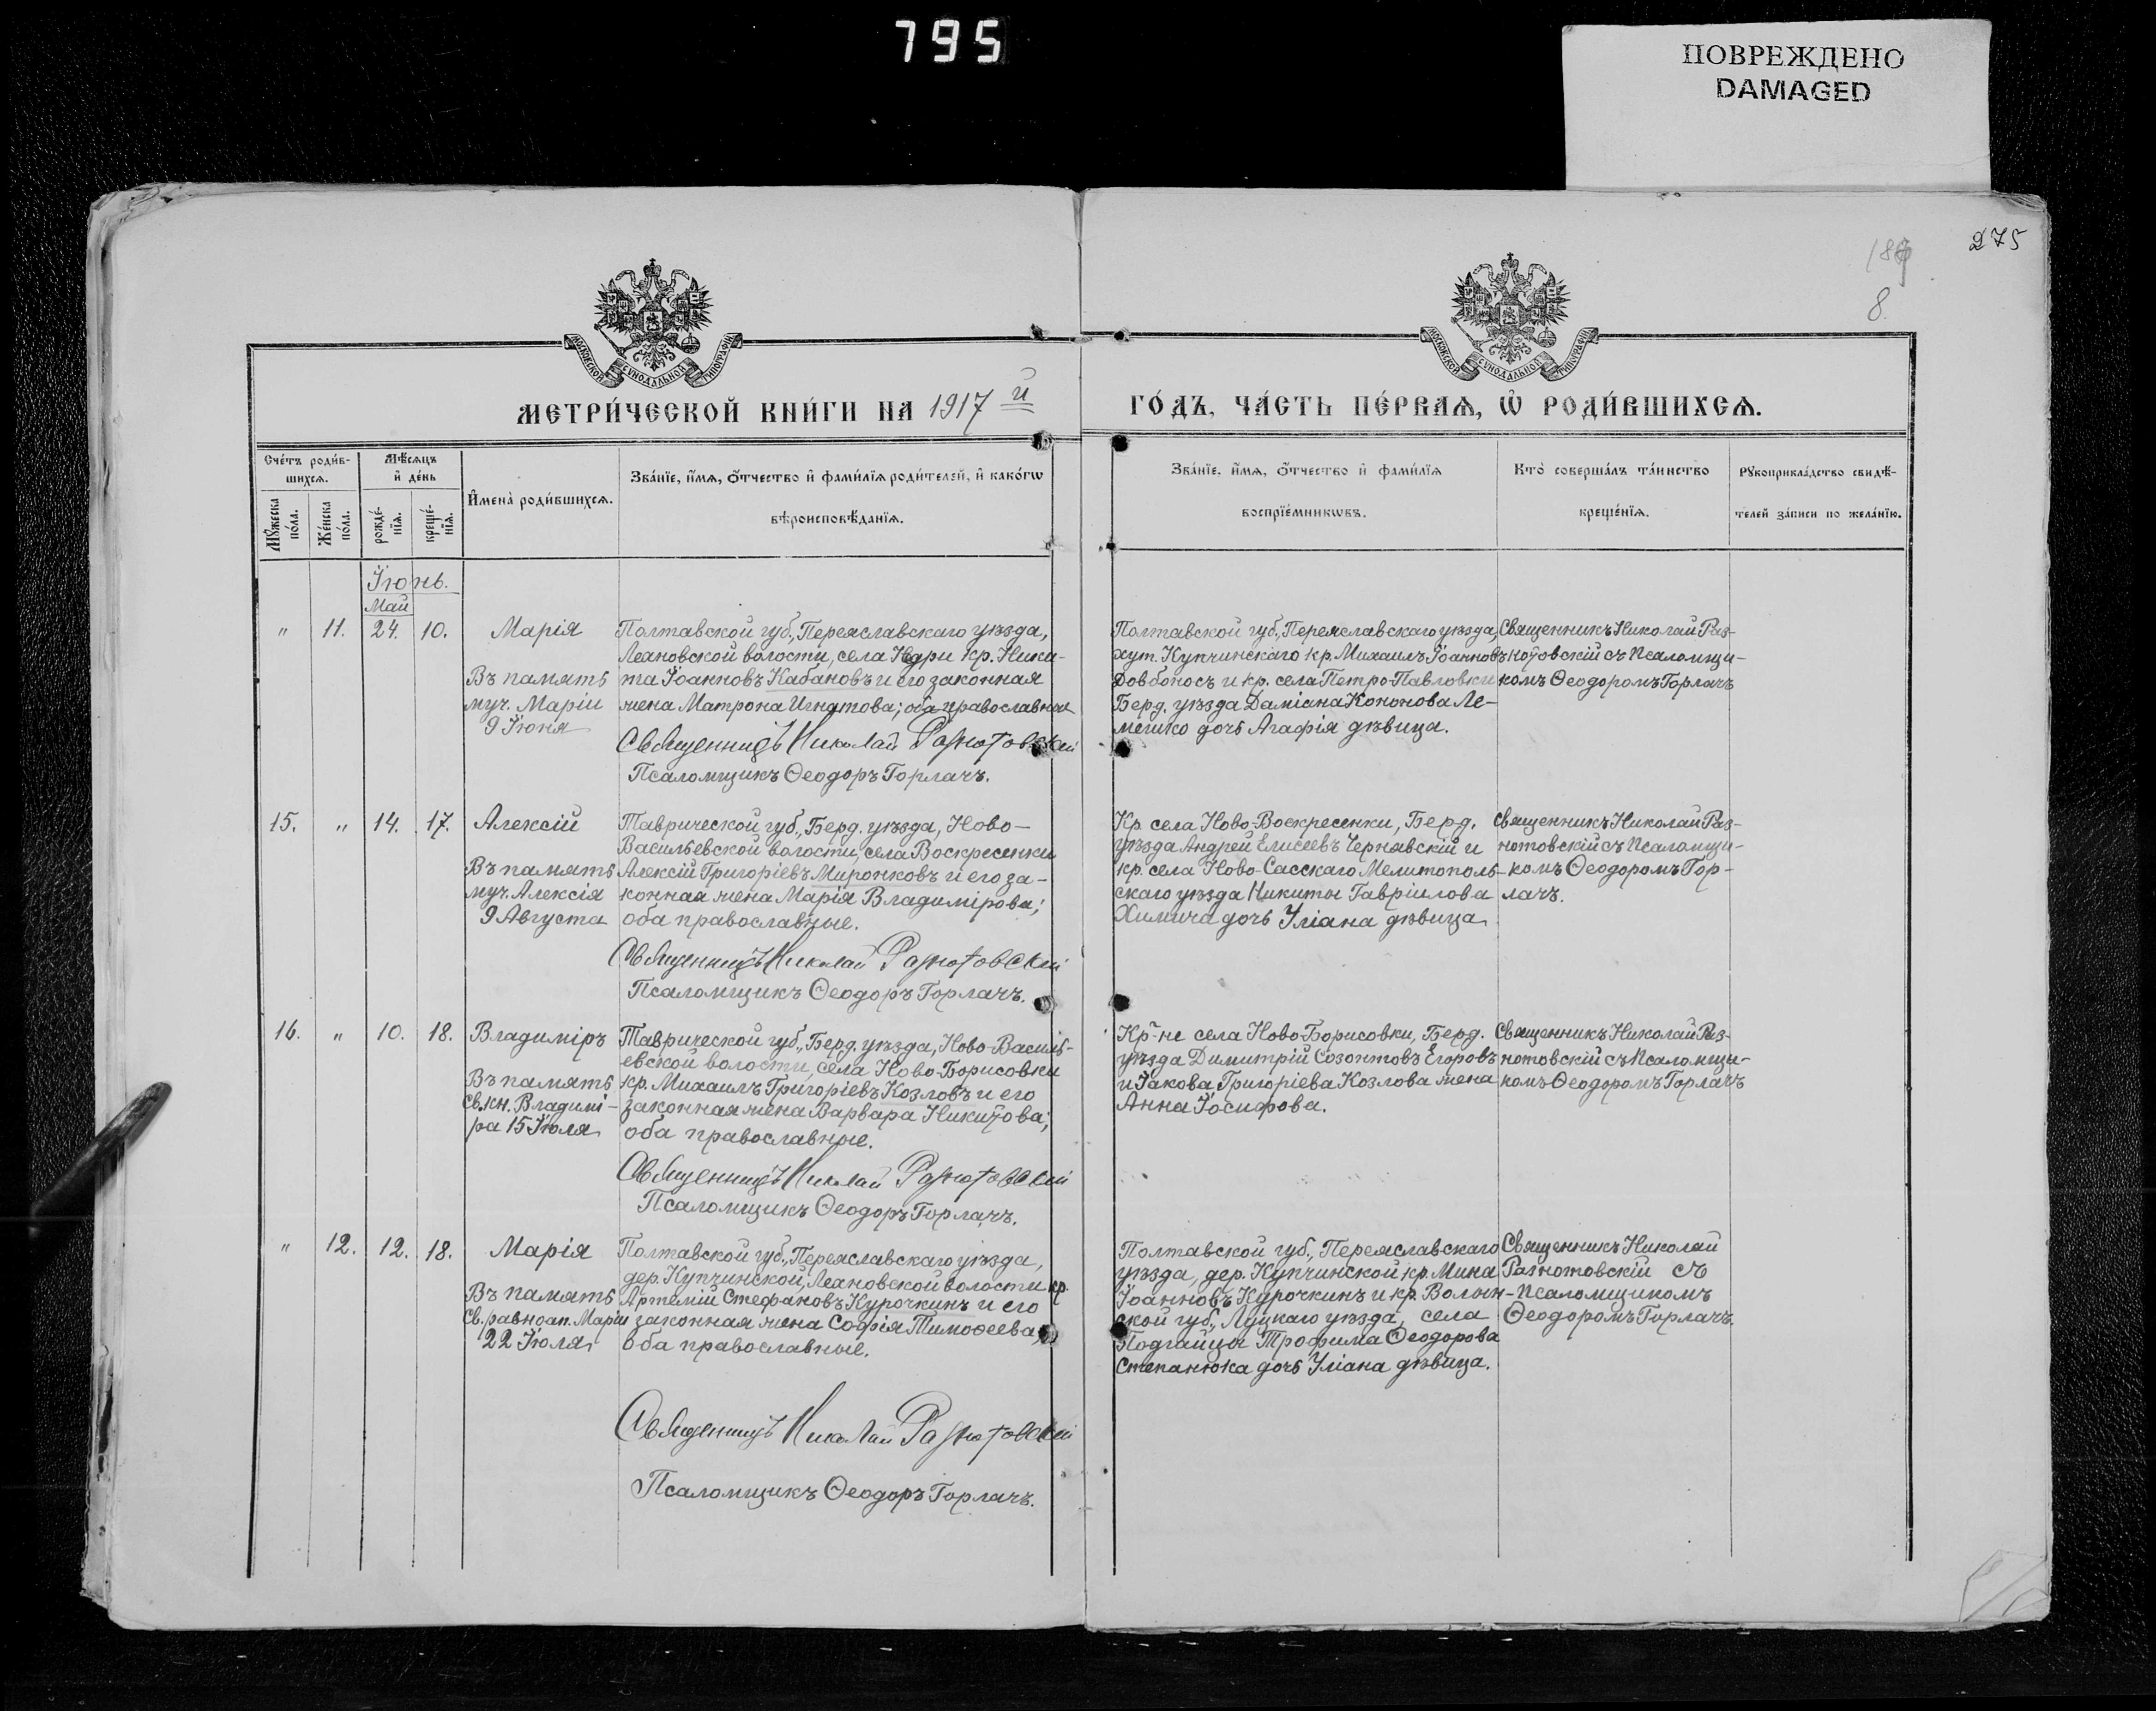 795
ПОВРЕЖДЕНО
DAMAGED
275
8.
МОСКОВСКОЙ СѴНОДАЛЬНОЙ ТИПОГРАФІИ
МОСКОВСКОЙ СѴНОДАЛЬНОЙ ТИПОГРАФІИ
МЕТРИ́ЧЕСКОЙ КНИ́ГИ НА 1917 й
ГО́ДЪ, ЧА́СТЬ ПЕ́РВАѦ, Ѡ҆ РОДИ́ВШИХСѦ.
Сче́тъ роди́в-
шихсѧ.
Мꙋ́жеска по́ла.
Же́нска по́ла.
Мѣ́сѧцъ
и҆ де́нь
рожде́-
нїѧ.
креще́-
нїѧ.
И҆мена̀ роди́вшихсѧ.
Зва́нїе, и҆́мѧ, ѻ҆́тчество и҆ фами́лїѧ роди́телей, и҆ како́гѡ
вѣроисповѣ́данїѧ.
Зва́нїе, и҆́мѧ, ѻ҆́тчество и҆ фами́лїѧ
воспрїе́мникѡвъ.
Кто̀ соверша́лъ та́инство
креще́нїѧ.
Рꙋкоприкла́дство свидѣ́-
телей за́писи по жела́нїю.
Іюнь.
Май
" 11. 24. 10.
Марія
Въ память
муч. Маріи
9 Іюня
Полтавской губ., Переяславскаго уѣзда,
Леановской волости, села Недри кр. Ники-
та Іоанновъ Кабановъ и его законная
жена Матрона Игнатова; оба православные
Священникъ Николай Разнотовскій
Псаломщикъ Ѳеодоръ Горлачъ.
Полтавской губ., Переяславскаго уѣзда,
хут. Купчинскаго кр. Михаилъ Іоанновъ
Довбоносъ и кр. села Петро-Павловки
Берд. уѣзда Даміана Кононова Ле-
мешко дочь Агафія дѣвица.
Священникъ Николай Раз-
нотовскій съ Псаломщи-
комъ Ѳеодоромъ Горлачъ
15. " 14. 17.
Алексій
Въ память
муч. Алексія
9 Августа
Таврической губ., Берд. уѣзда, Ново-
Васильевской волости, села Воскресенки
Алексій Григоріевъ Миронковъ и его за-
конная жена Марія Владимірова;
оба православные.
Священникъ Николай Разнотовскій
Псаломщикъ Ѳеодоръ Горлачъ.
Кр. села Ново-Воскресенки, Берд.
уѣзда Андрей Елисеевъ Чернавскій и
кр. села Ново-Сасскаго Мелитополь-
скаго уѣзда Никиты Гавріилова
Химича дочь Уліана дѣвица
Священникъ Николай Раз-
нотовскій съ Псаломщи-
комъ Ѳеодоромъ Гор-
лачъ.
16. " 10. 18.
Владиміръ
Въ память
Св. кн. Владимі-
ра 15 Іюля
Таврической губ., Берд. уѣзда, Ново-Василь-
евской волости, села Ново-Борисовки
кр. Михаилъ Григоріевъ Козловъ и его
законная жена Варвара Никитова;
оба православные.
Священникъ Николай Разнотовскій
Псаломщикъ Ѳеодоръ Горлачъ.
Кр-не села Ново-Борисовки, Берд.
уѣзда Димитрій Созонтовъ Егоровъ
и Іакова Григоріева Козлова жена
Анна Іосифова.
Священникъ Николай Раз-
нотовскій съ Псаломщи-
комъ Ѳеодоромъ Горлачъ
" 12. 12. 18.
Марія
Въ память
Св. равноап. Маріи
22 Іюля
Полтавской губ., Переяславскаго уѣзда,
дер. Купчинской, Леановской волости кр.
Артемій Стефановъ Курочкинъ и его
законная жена Софія Тимоѳеева;
оба православные.
Священникъ Николай Разнотовскій
Псаломщикъ Ѳеодоръ Горлачъ.
Полтавской губ., Переяславскаго
уѣзда, дер. Купчинской кр. Мина
Іоанновъ Курочкинъ и кр. Волын-
ской губ., Луцкаго уѣзда, села
Подгайцы Трофима Ѳеодорова
Степанюка дочь Уліана дѣвица.
Священникъ Николай
Разнотовскій съ
Псаломщикомъ
Ѳеодоромъ Горлачъ.